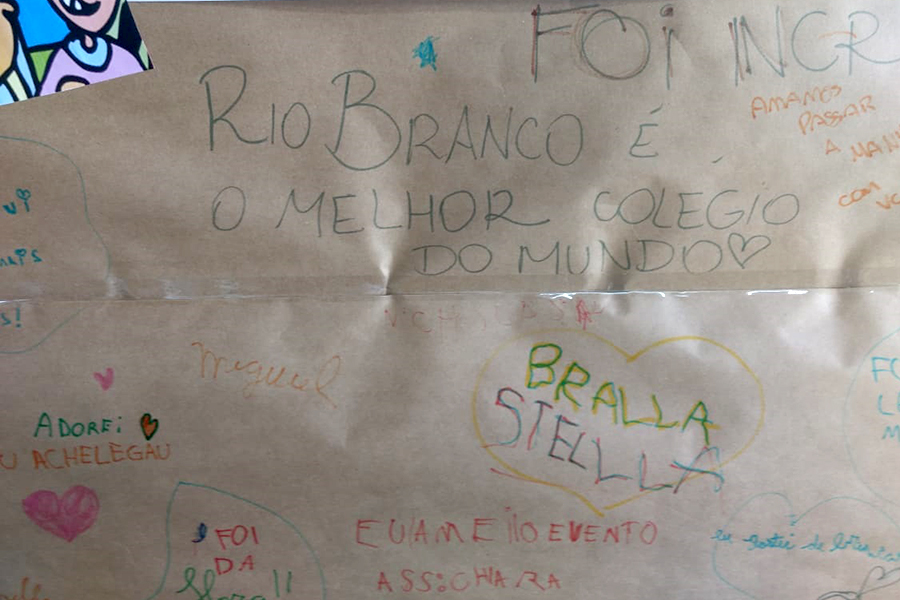 FOI INCR
RIO BRANCO É
O MELHOR COLÉGIO
DO MUNDO
AMAMOS
PASSAR
A MAN
COM VC
vi
mais
s!
Miguel
BRALLA
STELLA
ADOREi
U ACHELEGAU
FOI
DA
Hora!!
EUAMEiIOEVENTO
ASS:CHIARA
eu gostei de
FO
L
M